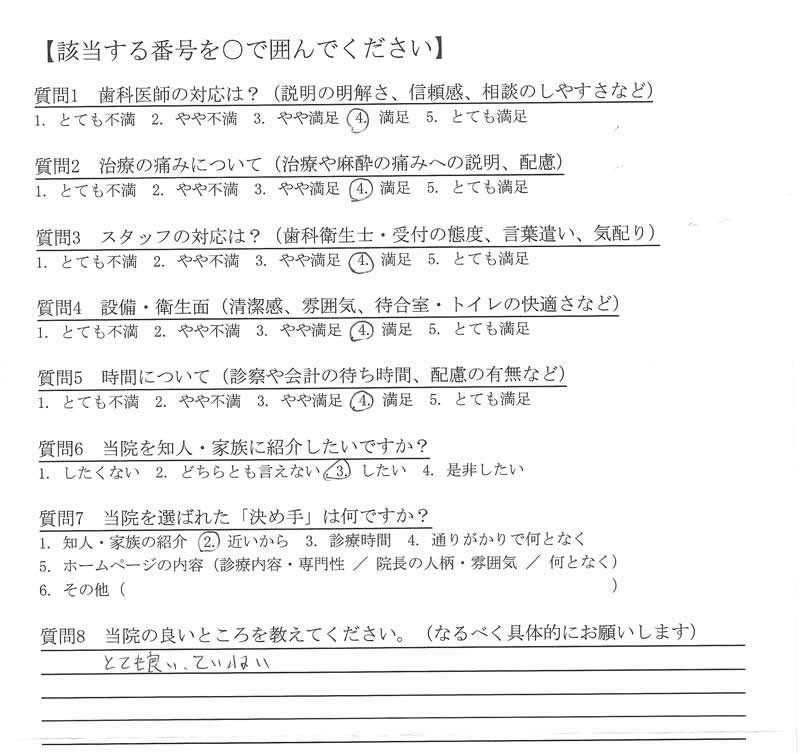 【該当する番号を○で囲んでください】
質問1 歯科医師の対応は？（説明の明解さ、信頼感、相談のしやすさなど）
1. とても不満 2. やや不満 3. やや満足 4. 満足 5. とても満足
質問2 治療の痛みについて（治療や麻酔の痛みへの説明、配慮）
1. とても不満 2. やや不満 3. やや満足 4. 満足 5. とても満足
質問3 スタッフの対応は？（歯科衛生士・受付の態度、言葉遣い、気配り）
1. とても不満 2. やや不満 3. やや満足 4. 満足 5. とても満足
質問4 設備・衛生面（清潔感、雰囲気、待合室・トイレの快適さなど）
1. とても不満 2. やや不満 3. やや満足 4. 満足 5. とても満足
質問5 時間について（診察や会計の待ち時間、配慮の有無など）
1. とても不満 2. やや不満 3. やや満足 4. 満足 5. とても満足
質問6 当院を知人・家族に紹介したいですか？
1. したくない 2. どちらとも言えない 3. したい 4. 是非したい
質問7 当院を選ばれた「決め手」は何ですか？
1. 知人・家族の紹介 2. 近いから 3. 診療時間 4. 通りがかりで何となく
5. ホームページの内容（診療内容・専門性 ／ 院長の人柄・雰囲気 ／ 何となく）
6. その他（ ）
質問8 当院の良いところを教えてください。（なるべく具体的にお願いします）
とても良い、ていねい